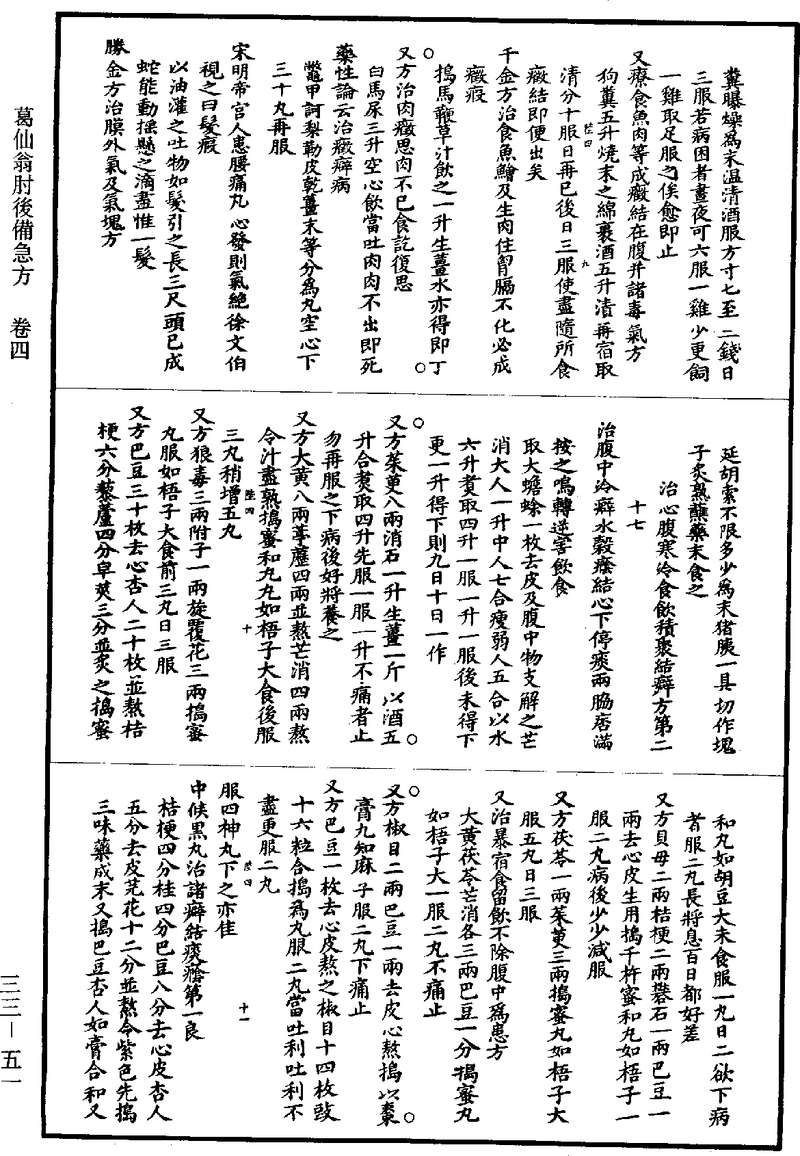 糞曝燥為末温清酒服方寸匕至二錢日
三服若病困者晝夜可六服一雞少更飼
一雞取足服之俟愈即止
又療食魚肉等成癥結在腹并諸毒氣方
狗糞五升燒末之綿裹酒五升漬再宿取
陸四 九
清分十服日再已後日三服使盡隨所食
癥結即便出矣
千金方治食魚鱠及生肉住胷膈不化必成
癥瘕
搗馬鞭草汁飲之一升生薑水亦得即丁
又方治肉癥思肉不已食訖復思
白馬尿三升空心飲當吐肉肉不出即死
藥性論云治癥癖病
鼈甲訶梨勒皮乾薑末等分為丸空心下
三十丸再服
宋明帝宫人患腰痛丸心發則氣絶徐文伯
視之曰髮瘕
以油灌之吐物如髮引之長三尺頭已成
蛇能動揺懸之滴盡惟一髮
勝金方治膜外氣及氣塊方
延胡索不限多少為末猪胰一具切作塊
子炙熟蘸藥末食之
治心腹寒冷食飲積聚結癖方第二
十七
治腹中冷癖水穀癊結心下停痰兩脇痞滿
按之鳴轉逆害飲食
取大蟾蜍一枚去皮及腹中物支解之芒
消大人一升中人七合瘦弱人五合以水
六升煑取四升一服一升一服後未得下
更一升得下則九日十日一作
又方茱萸八兩消石一升生薑一斤以酒五
升合煑取四升先服一服一升不痛者止
勿再服之下病後好將養之
又方大黃八兩葶藶四兩並熬芒消四兩熬
令汁盡熟搗蜜和丸丸如梧子大食後服
陸四 十
三丸稍增五丸
又方狼毒三兩附子一兩旋覆花三兩搗蜜
丸服如梧子大食前三丸日三服
又方巴豆三十枚去心杏人二十枚並熬桔
梗六分藜蘆四分皁莢三分並炙之搗蜜
和丸如胡豆大未食服一丸日二欲下病
者服二丸長將息百日都好差
又方貝母二兩桔梗二兩礬石一兩巴豆一
兩去心皮生用搗千杵蜜和丸如梧子一
服二丸病後少少減服
又方茯苓一兩茱萸三兩搗蜜丸如梧子大
服五丸日三服
又治暴宿食留飲不除腹中為患方
大黃茯苓芒消各三兩巴豆一分搗蜜丸
如梧子大一服二丸不痛止
又方椒目二兩巴豆一兩去皮心熬搗以棗
膏丸如麻子服二丸下痛止
又方巴豆一枚去心皮熬之椒目十四枚豉
十六粒合搗為丸服二丸當吐利吐利不
盡更服二丸
陸四 十一
服四神丸下之亦佳
中候黑丸治諸癖結痰癊第一良
桔梗四分桂四分巴豆八分去心皮杏人
五分去皮芫花十二分並熬令紫色先搗
三味藥成末又搗巴豆杏人如膏合和又
葛仙翁肘後備急方 卷四
三三—五一